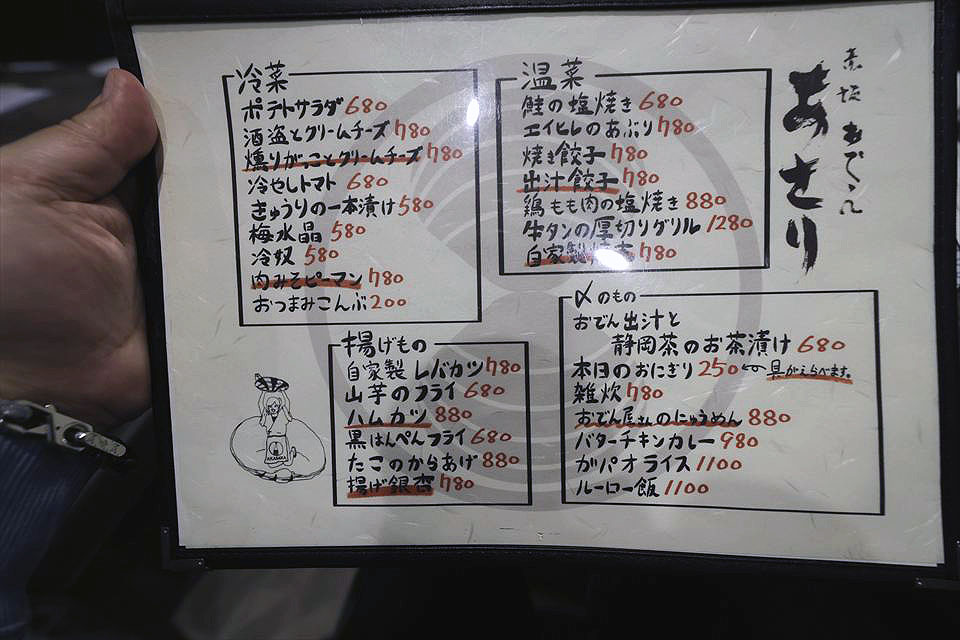 赤坂 おでん
あさり
冷菜
ポテトサラダ 680
酒盗とクリームチーズ 780
燻りがっことクリームチーズ 780
冷やしトマト 680
きゅうりの一本漬け 580
梅水晶 580
冷奴 580
肉みそピーマン 780
おつまみこんぶ 200
温菜
鮭の塩焼き 680
エイヒレのあぶり 780
焼き餃子 780
出汁餃子 780
鶏もも肉の塩焼き 880
牛タンの厚切りグリル 1280
自家製焼売 780
揚げもの
自家製レバカツ 780
山芋のフライ 680
ハムカツ 880
黒はんぺんフライ 680
たこのからあげ 880
揚げ銀杏 780
〆のもの
おでん出汁と
静岡茶のお茶漬け 680
本日のおにぎり 250 ← 具がえらべます。
雑炊 780
おでん屋さんのにゅうめん 880
バターチキンカレー 980
ガパオライス 1100
ルーロー飯 1100
AKASAKA